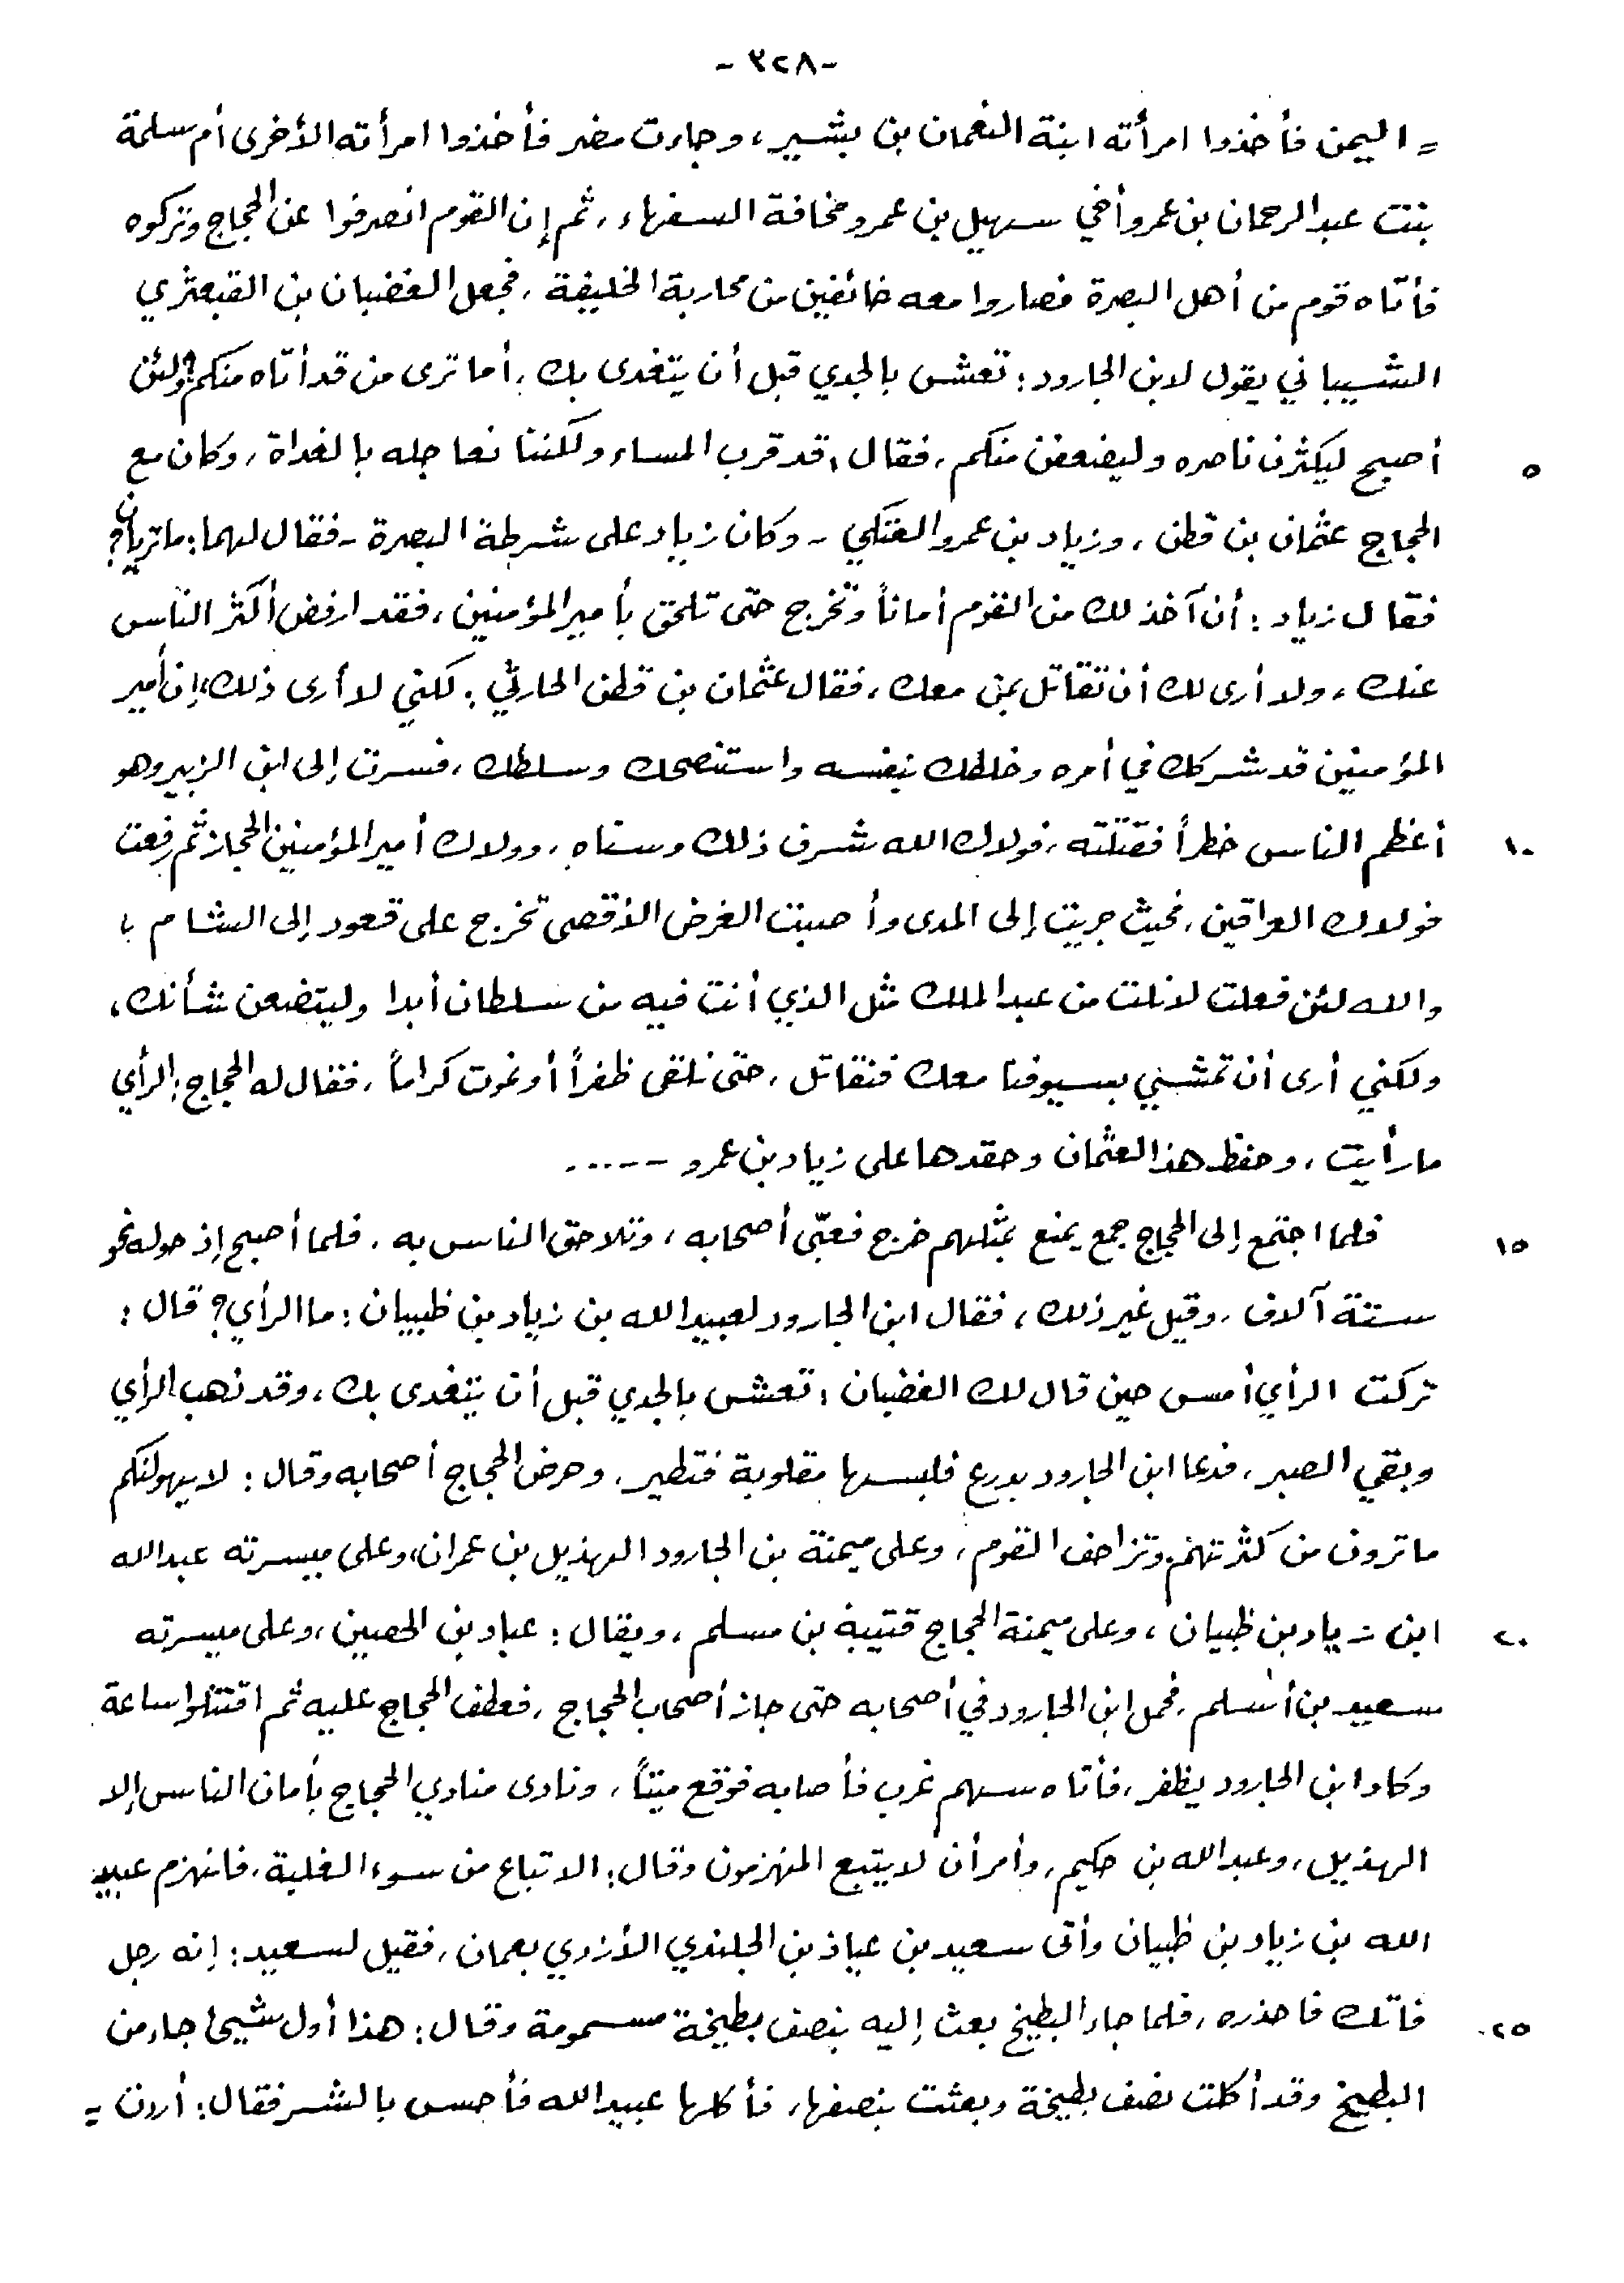 -٣٢٨-
= اليمن فأخذوا امرأته ابنة النعمان بن بشير، وجاءت مضر فأخذوا امرأته الأخرى أم سلمة
بنت عبد الرحمان بن عمرو أخي سهيل بن عمرو مخافة السفهاء، ثم إن القوم انصرفوا عن الحجاج وتركوه
فأتاه قوم من أهل البصرة فصاروا معه خائفين من محاربة الخليفة، فجعل الغضبان بن القبعثري
الشيباني يقول لابن الجارود: تعشى بالجدي قبل أن يتغدى بك، أما ترى من قد أتاه منكم؟ ولئن
أصبح ليكثرن ناصره وليضعفن منكم، فقال: قد قرب المساء ولكننا نعاجله بالغداة، وكان مع
٥
الحجاج عثمان بن قطن، وزياد بن عمرو العتكي - وكان زياد على شرطة البصرة - فقال لهما: ما تريان؟
فقال زياد: أن آخذ لك من القوم أماناً وتخرج حتى تلحق بأمير المؤمنين، فقد ارفض أكثر الناس
عنك، ولا أرى لك أن تقاتل بمن معك، فقال عثمان بن قطن الحارثي: لكني لا أرى ذلك، إن أمير
المؤمنين قد شركك في أمره وخلطك بنفسه واستنصحك وسلطك، فسرت إلى ابن الزبير وهو
أعظم الناس خطراً فقتلته، فولاك الله شرف ذلك وسناه، وولاك أمير المؤمنين الحجاز ثم رفعت
١٠
فولاك العراقين، فحيث جريت إلى المدى وأصبت الغرض الأقصى تخرج على قعود إلى الشام،
والله لئن فعلت لا نلت من عبد الملك مثل الذي أنت فيه من سلطان أبدا وليتضعن شأنك،
ولكني أرى أن تمشي بسيوفنا معك فنقاتل، حتى نلقى ظفراً أو نموت كراماً، فقال له الحجاج: الرأي
ما رأيت، وحفظ هذا لعثمان وحقدها على زياد بن عمرو -----.
فلما اجتمع إلى الحجاج جمع يمنع بمثلهم خرج فعبّى أصحابه، وتلاحق الناس به، فلما أصبح إذ حوله نحو
١٥
ستة آلاف، وقيل غير ذلك، فقال ابن الجارود لعبيد الله بن زياد بن ظبيان: ما الرأي؟ قال:
تركت الرأي أمس حين قال لك الغضبان: تعشى بالجدي قبل أن يتغدى بك، وقد ذهب الرأي
وبقي الصبر، فدعا ابن الجارود بدرع فلبسها مقلوبة فتطير، وحرض الحجاج أصحابه وقال: لا يهولنكم
ما ترون من كثرتهم، وتزاحف القوم، وعلى ميمنة بن الجارود الهذيل بن عمران، وعلى ميسرته عبد الله
ابن زياد بن ظبيان، وعلى ميمنة الحجاج قتيبة بن مسلم، ويقال: عباد بن الحصين، وعلى ميسرته
٢٠
سعيد بن أسلم، فحمل ابن الجارود في أصحابه حتى جاز أصحاب الحجاج، فعطف الحجاج عليه ثم اقتتلوا ساعة
وكاد ابن الجارود يظفر، فأتاه سهم غرب فأصابه فوقع ميتاً، ونادى منادي الحجاج بأمان الناس إلا
الهذيل، وعبد الله بن حكيم، وأمر أن لا يتبع المنهزمون وقال: الاتباع من سوء الغلبة، فانهزم عبيد
الله بن زياد بن ظبيان وأتى سعيد بن عياذ بن الجلندي الأزدي بعمان، فقيل لسعيد: إنه رجل
فاتك فاحذره، فلما جاء البطيخ بعث إليه بنصف بطيخة مسمومة وقال: هذا أول شيئ جاء من
٢٥
البطيخ وقد أكلت نصف بطيخة وبعثت بنصفها، فأكلها عبيد الله فأحس بالشر فقال: أردت =